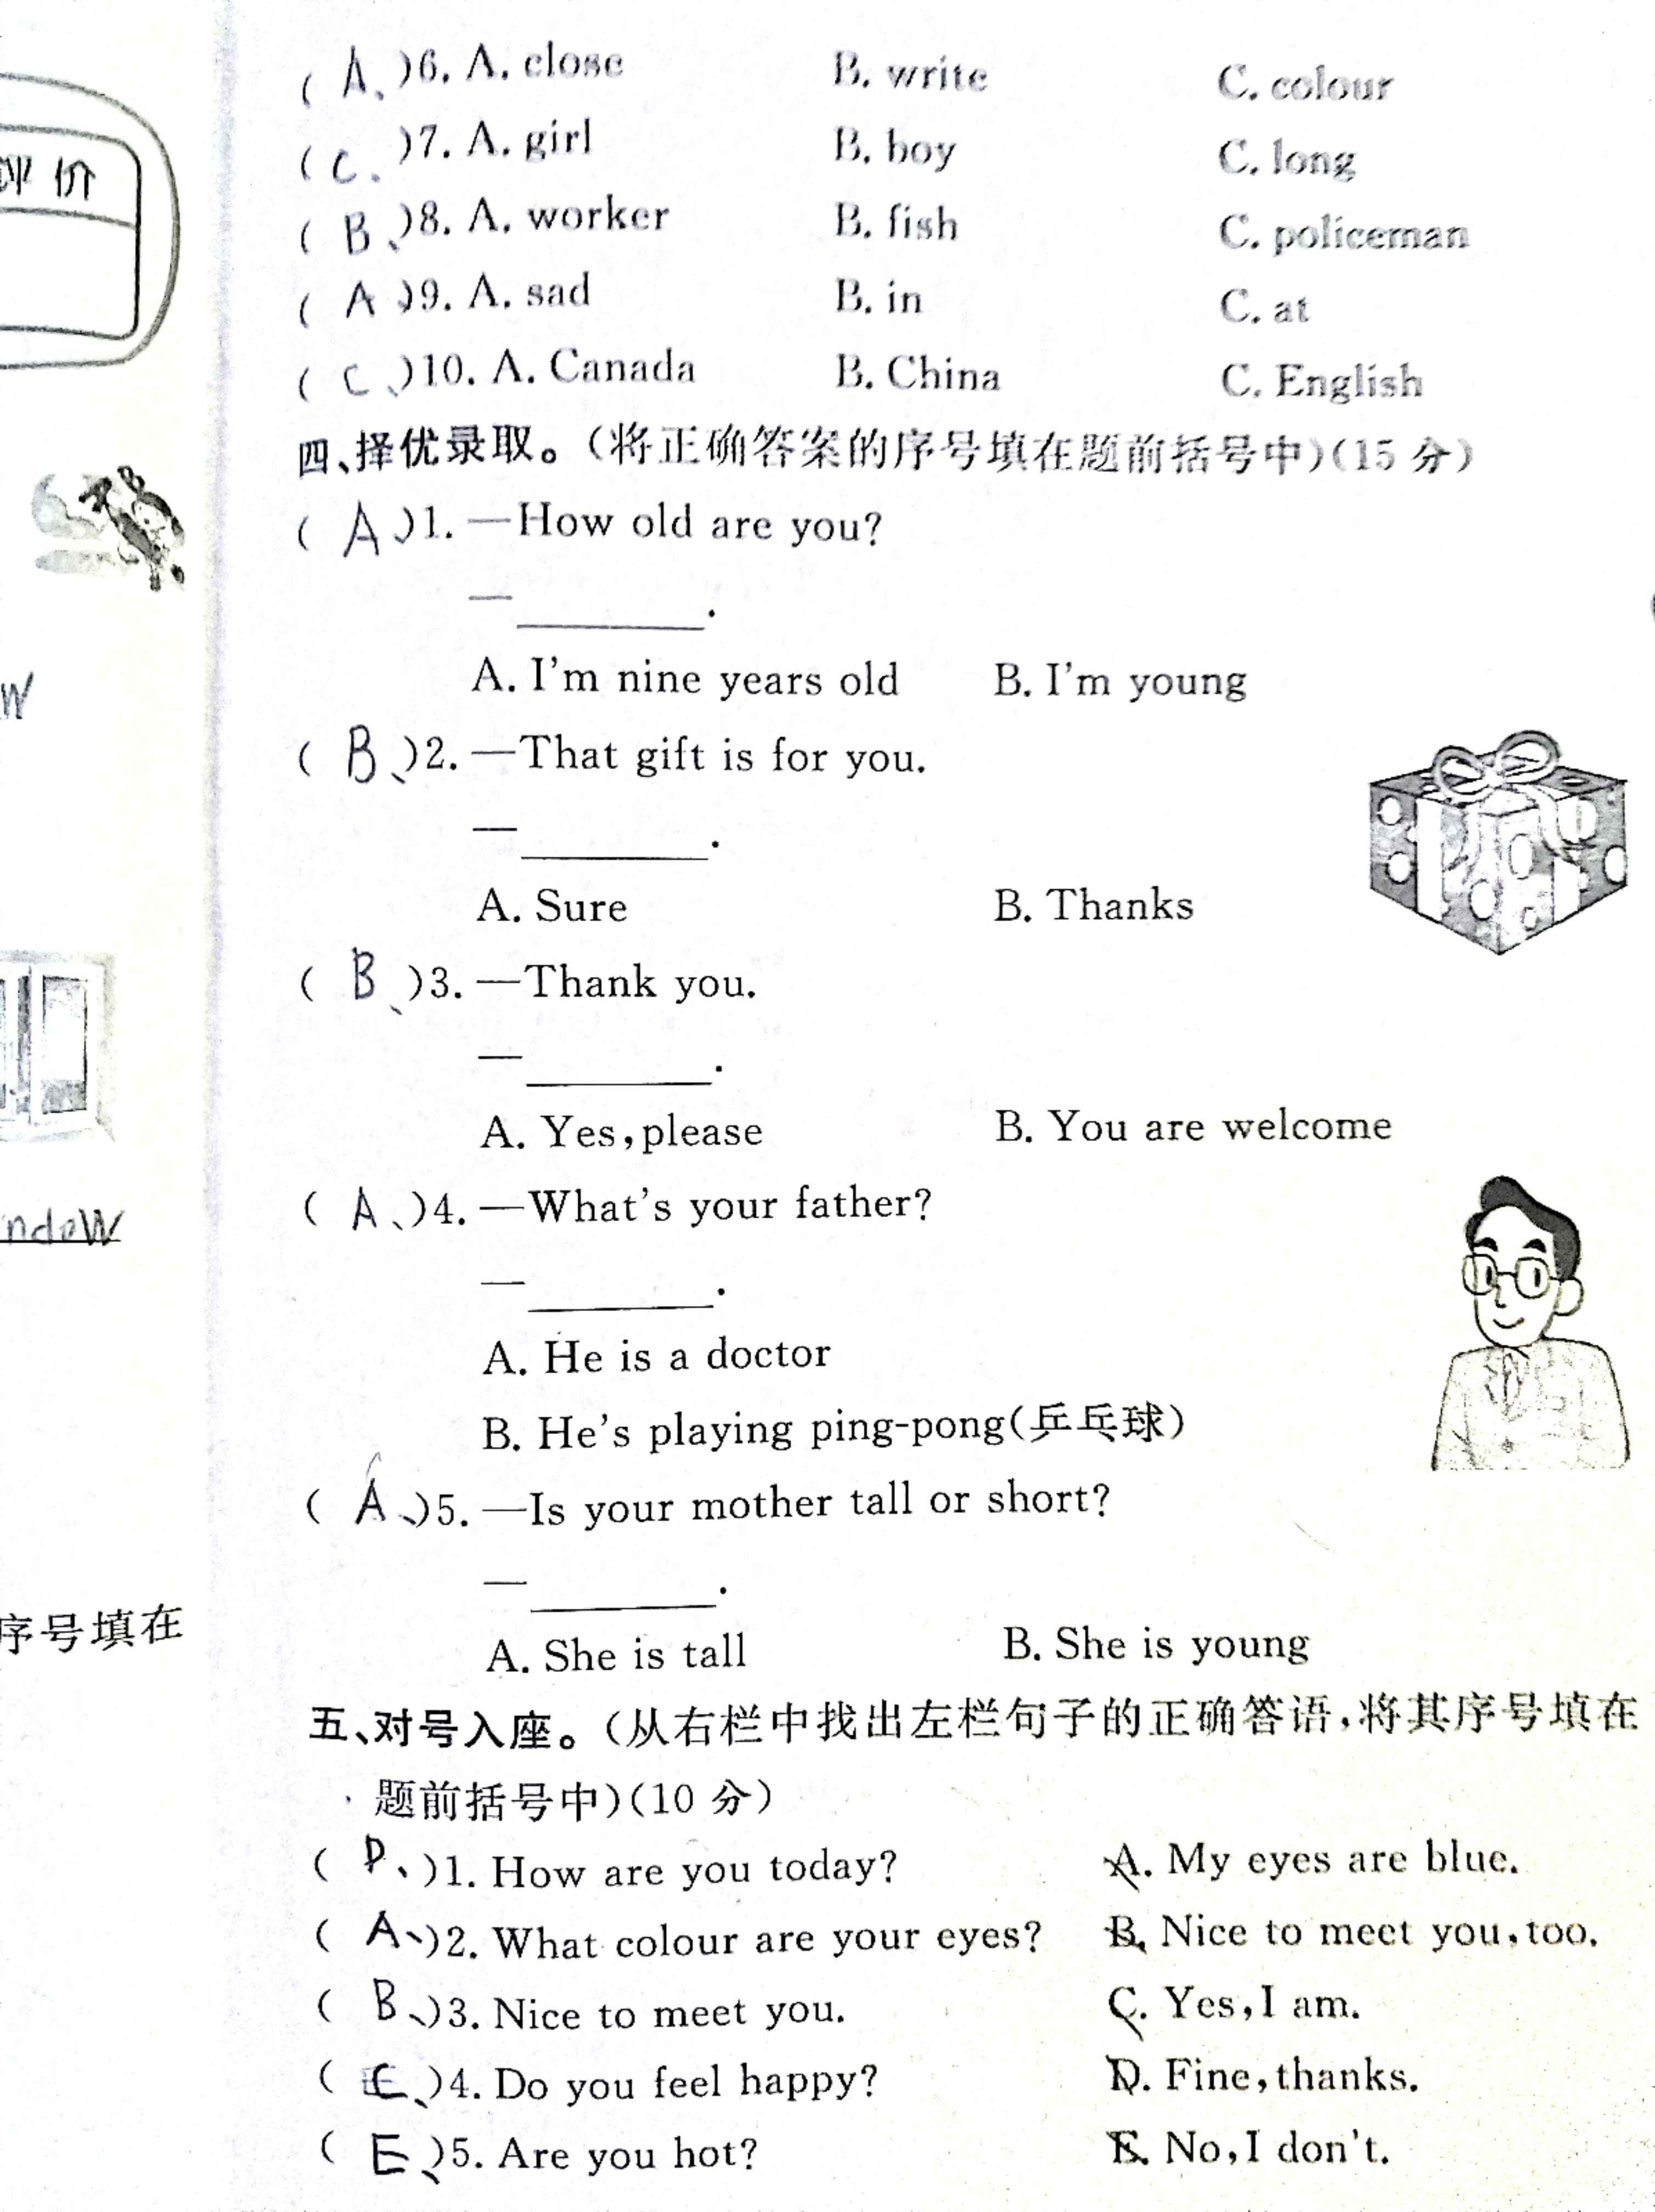 评价
w
ndow
序号填在
( A、)6. A. close B. write C. colour
( C. )7. A. girl B. boy C. long
( B、)8. A. worker B. fish C. policeman
( A、)9. A. sad B. in C. at
( C、)10. A. Canada B. China C. English
四、择优录取。(将正确答案的序号填在题前括号中)(15分)
( A、)1. —How old are you?
—________.
A. I'm nine years old B. I'm young
( B、)2. —That gift is for you.
—________.
A. Sure B. Thanks
( B、)3. —Thank you.
—________.
A. Yes,please B. You are welcome
( A、)4. —What's your father?
—________.
A. He is a doctor
B. He's playing ping-pong(乒乓球)
( A、)5. —Is your mother tall or short?
—________.
A. She is tall B. She is young
五、对号入座。(从右栏中找出左栏句子的正确答语,将其序号填在
题前括号中)(10分)
( D、)1. How are you today? A. My eyes are blue.
( A、)2. What colour are your eyes? B. Nice to meet you,too.
( B、)3. Nice to meet you. C. Yes,I am.
( C、)4. Do you feel happy? D. Fine,thanks.
( E、)5. Are you hot? E. No,I don't.